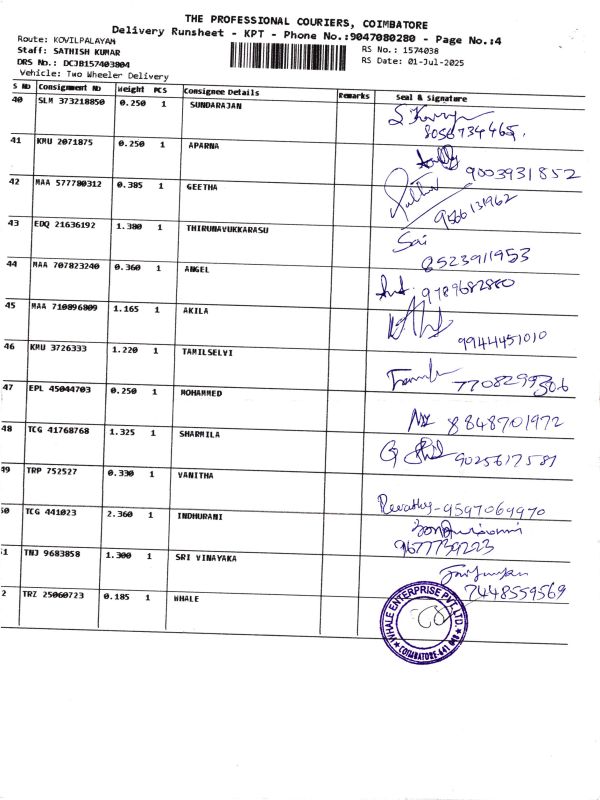 THE PROFESSIONAL COURIERS, COIMBATORE
Delivery Runsheet - KPT - Phone No.:9047080280 - Page No.:4
Route: KOVILPALAYAM
Staff: SATHISH KUMAR
DRS No.: DCJB157403804
Vehicle: Two Wheeler Delivery
RS No.: 1574038
RS Date: 01-Jul-2025
S No Consignment No Weight PCS Consignee Details Remarks Seal & Signature
40 SLM 373218850 0.250 1 SUNDARAJAN
8056734465.
41 KMU 2071875 0.250 1 APARNA
9003931852
42 MAA 577780312 0.385 1 GEETHA
9566131962
43 EDQ 21636192 1.380 1 THIRUNAVUKKARASU
Sai
8523911953
44 MAA 707823240 0.360 1 ANGEL
9789682880
45 MAA 710896809 1.165 1 AKILA
9944451010
46 KMU 3726333 1.220 1 TAMILSELVI
7708299306
47 EPL 45044703 0.250 1 MOHAMMED
8848701972
48 TCG 41768768 1.325 1 SHARMILA
9025617581
49 TRP 752527 0.330 1 VANITHA
Revathy-9597069970
50 TCG 441023 2.360 1 INDHURANI
9677739223
51 TNJ 9683858 1.300 1 SRI VINAYAKA
7448559569
2 TRZ 25060723 0.185 1 WHALE
WHALE ENTERPRISE PVT.LTD.
COIMBATORE-641